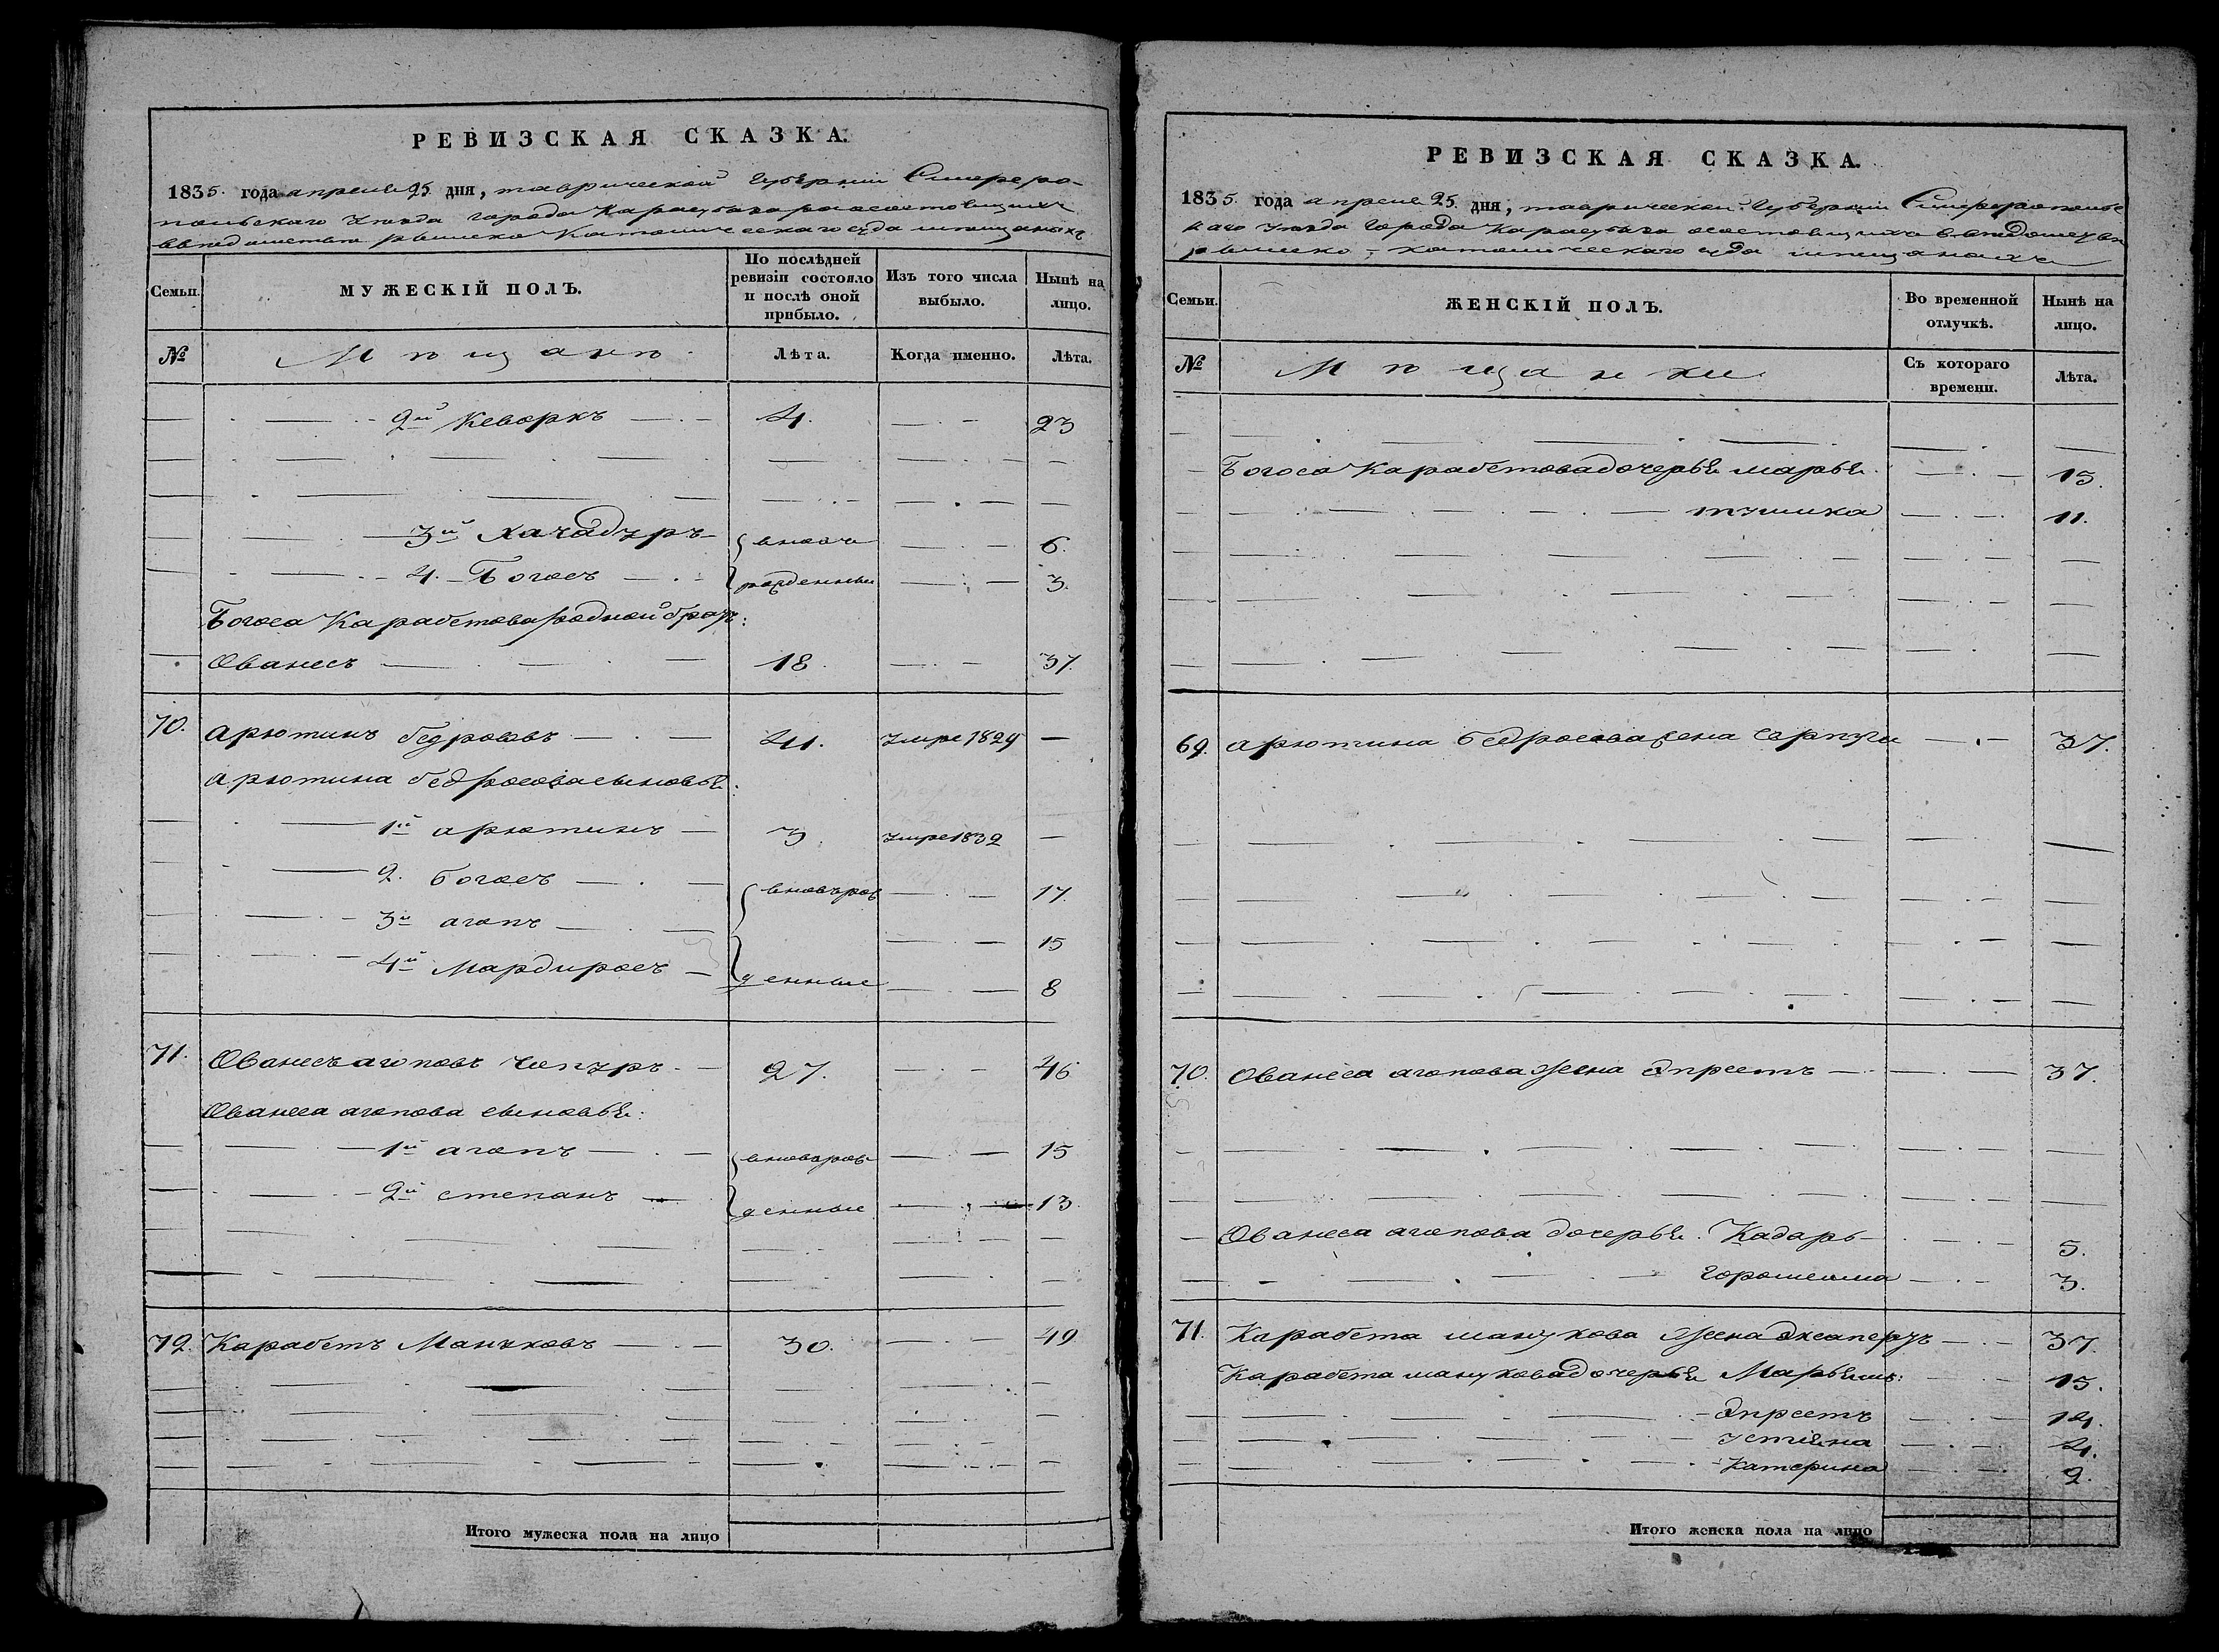 РЕВИЗСКАЯ СКАЗКА.
1835. года апреля 25 дня, таврической Губернии Симферо-
польскаго уезда города Карасубазара о состоящихъ
в ведомстве римско Католическаго суда мещанахъ
Семьи. МУЖЕСКІЙ ПОЛЪ. По послѣдней ревизіи состояло и послѣ оной прибыло. Изъ того числа выбыло. Нынѣ на лицо.
№ Мѣщанѣ Лѣта. Когда именно. Лѣта.
2й Кеворкъ 4. 23
3й Хачадуръ вновь 6.
4. Богосъ рожденные 3.
Богоса Карабетова родной братъ:
Ованесъ 18. 37.
70. Арютинъ бедросовъ 41. умре 1829
Арютина бедросова сыновья:
1й арютинъ 3. умре 1832
2. богосъ вноворож 17.
3й агопъ 15
4й Мардиросъ денные 8
71. Ованесъ агоповъ Чепуръ 27. 46
Ованеса агопова сыновья:
1й агопъ вноворож 15
2й степанъ денные 13
72. Карабетъ Мануковъ 30. 49
Итого мужеска пола на лицо
РЕВИЗСКАЯ СКАЗКА.
1835. года апреля 25. дня, таврической Губернии Симферопольс
каго уезда Города Карасубазара о состоящихъ в ведомстве
римско-католическаго суда мещанахъ
Семьи. ЖЕНСКІЙ ПОЛЪ. Во временной отлучкѣ. Нынѣ на лицо.
№ Мѣщанки Съ котораго времени. Лѣта.
Богоса Карабетова дочерья марья 15.
тушика 11.
69. арютина бедросова жена серпуги 37.
70. Ованеса агопова жена Эпресть 37.
Ованеса агопова дочерья. Кадаръ 5.
3.
71. Карабета манукова жена 37.
Карабета манукова дочерья Марьямъ: 15.
Эпресть 14.
устияна 4.
Катерина 2.
Итого женска пола на лицо